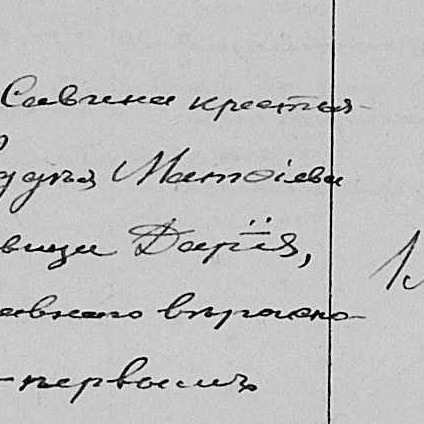 Савина крестья-
ддѣя Матѳіева
вица Дарія,
авнаго вѣроиспо-
-первымъ